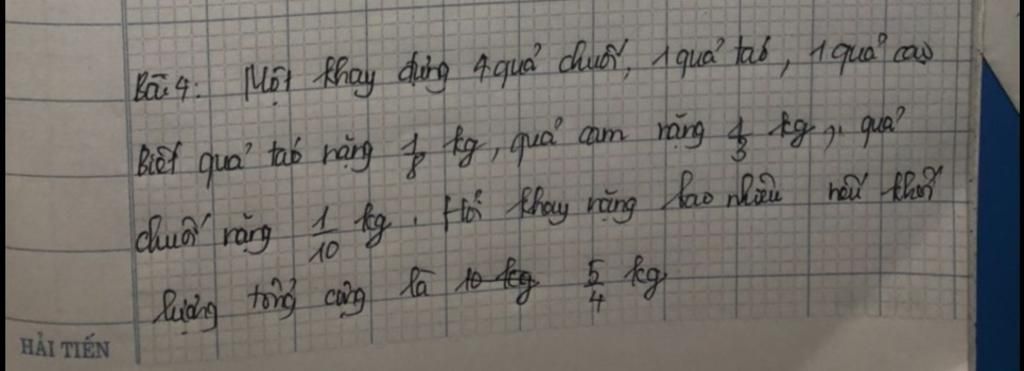 Bài 4: Một khay đựng 4 quả chuối, 1 quả táo, 1 quả cam
Biết quả táo nặng 1/8 kg, quả cam nặng 1/3 kg, quả
chuối nặng 1/10 kg. Hỏi khay nặng bao nhiêu nếu khối
lượng tổng cộng là 10 kg 5/4 kg
HẢI TIẾN